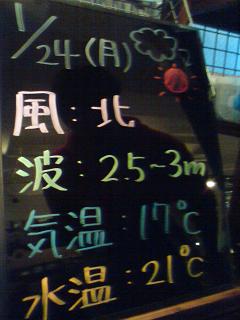 1/24(月)
風:北
波:2.5~3m
気温:17℃
水温:21℃